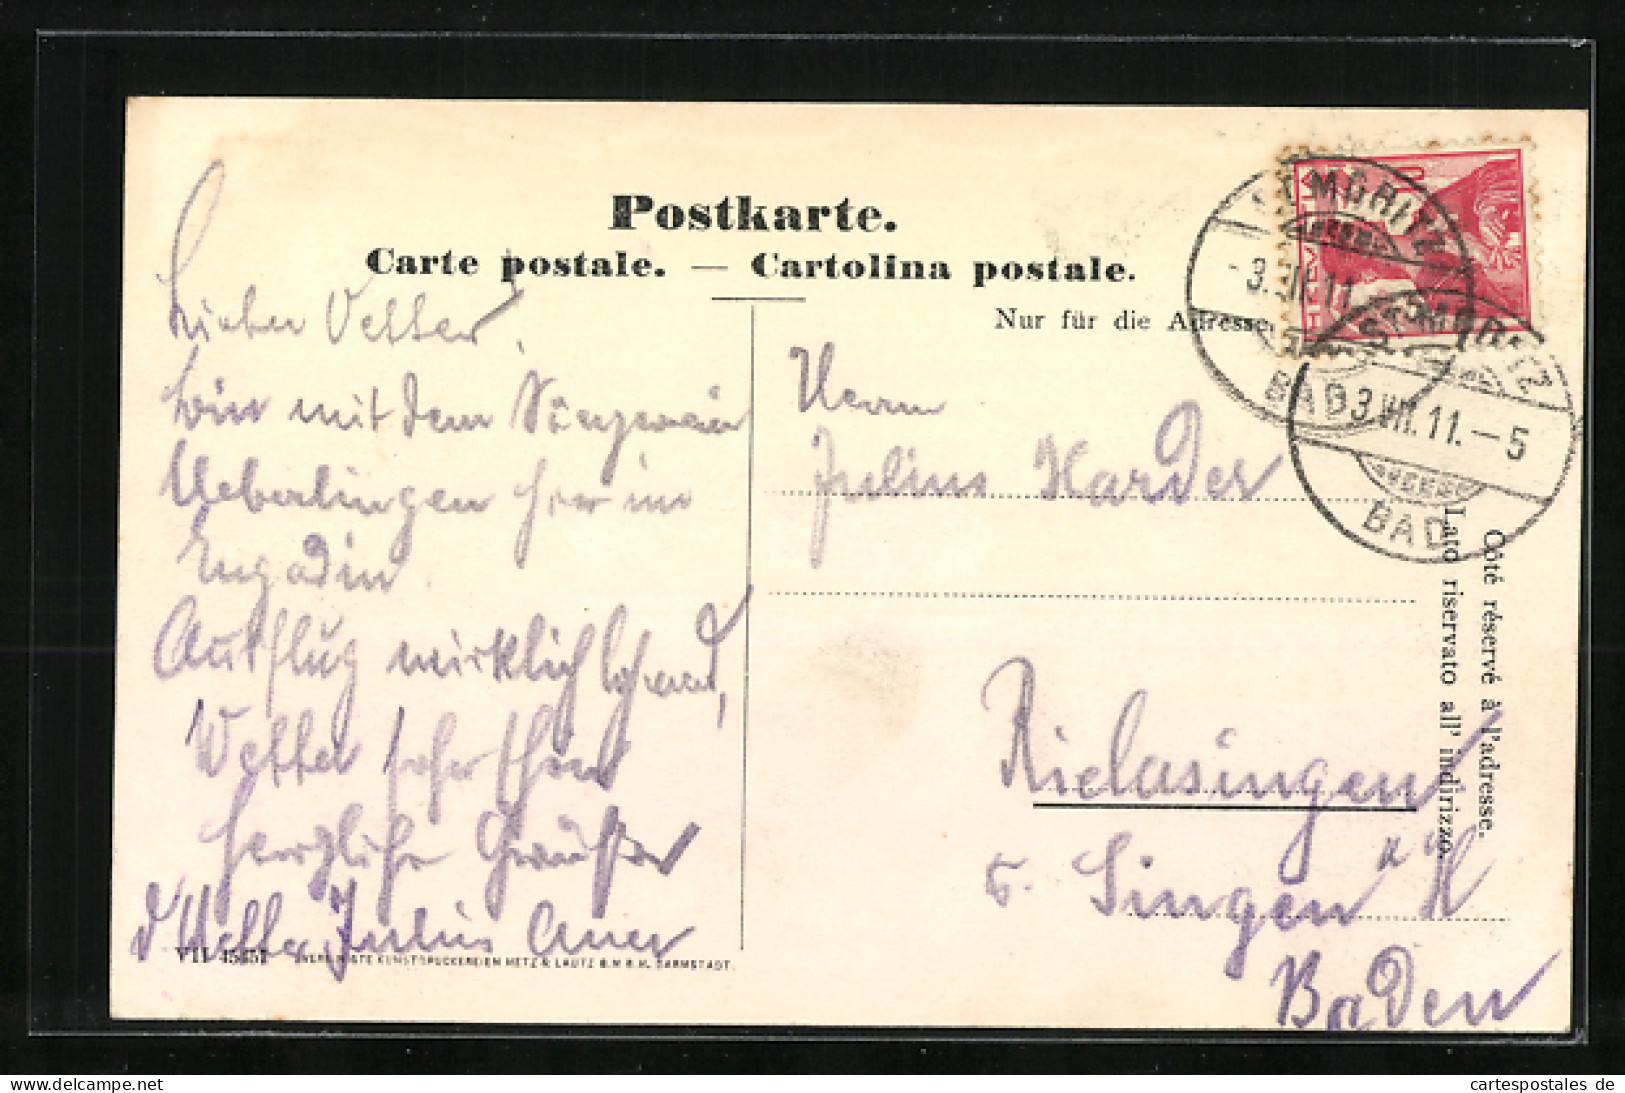 Postkarte.
Carte postale. — Cartolina postale.
Nur für die Adresse
Lieber Vetter,
bin mit dem Sängerverein
Ueberlingen hier im
Engadin.
Ausflug wirklich lohnend,
Wetter sehr schön
herzliche Grüsse
d Vetter Julius Auer
VII 45457 VEREINIGTE KUNSTDRUCKEREIEN METZ & LAUTZ G.M.B.H. DARMSTADT.
Herrn
Julius Harder
Rielasingen
b. Singen a/H
Baden
Côté réservé à l'adresse.
Lato riservato all' indirizzo.
HELVETIA
ST. MORITZ
3. VII. 11.
BAD
ST. MORITZ
3. VII. 11. — 5
BAD
cartespostales de